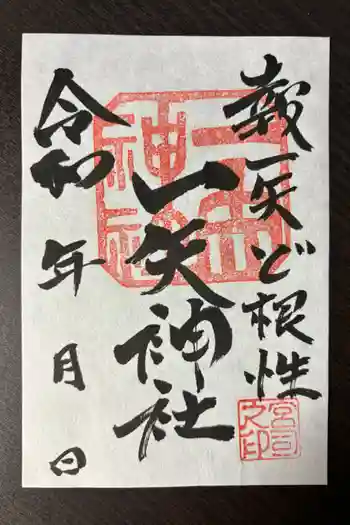 一矢ど根性
一矢神社
令和 年 月 日
一矢神社
宮司之印